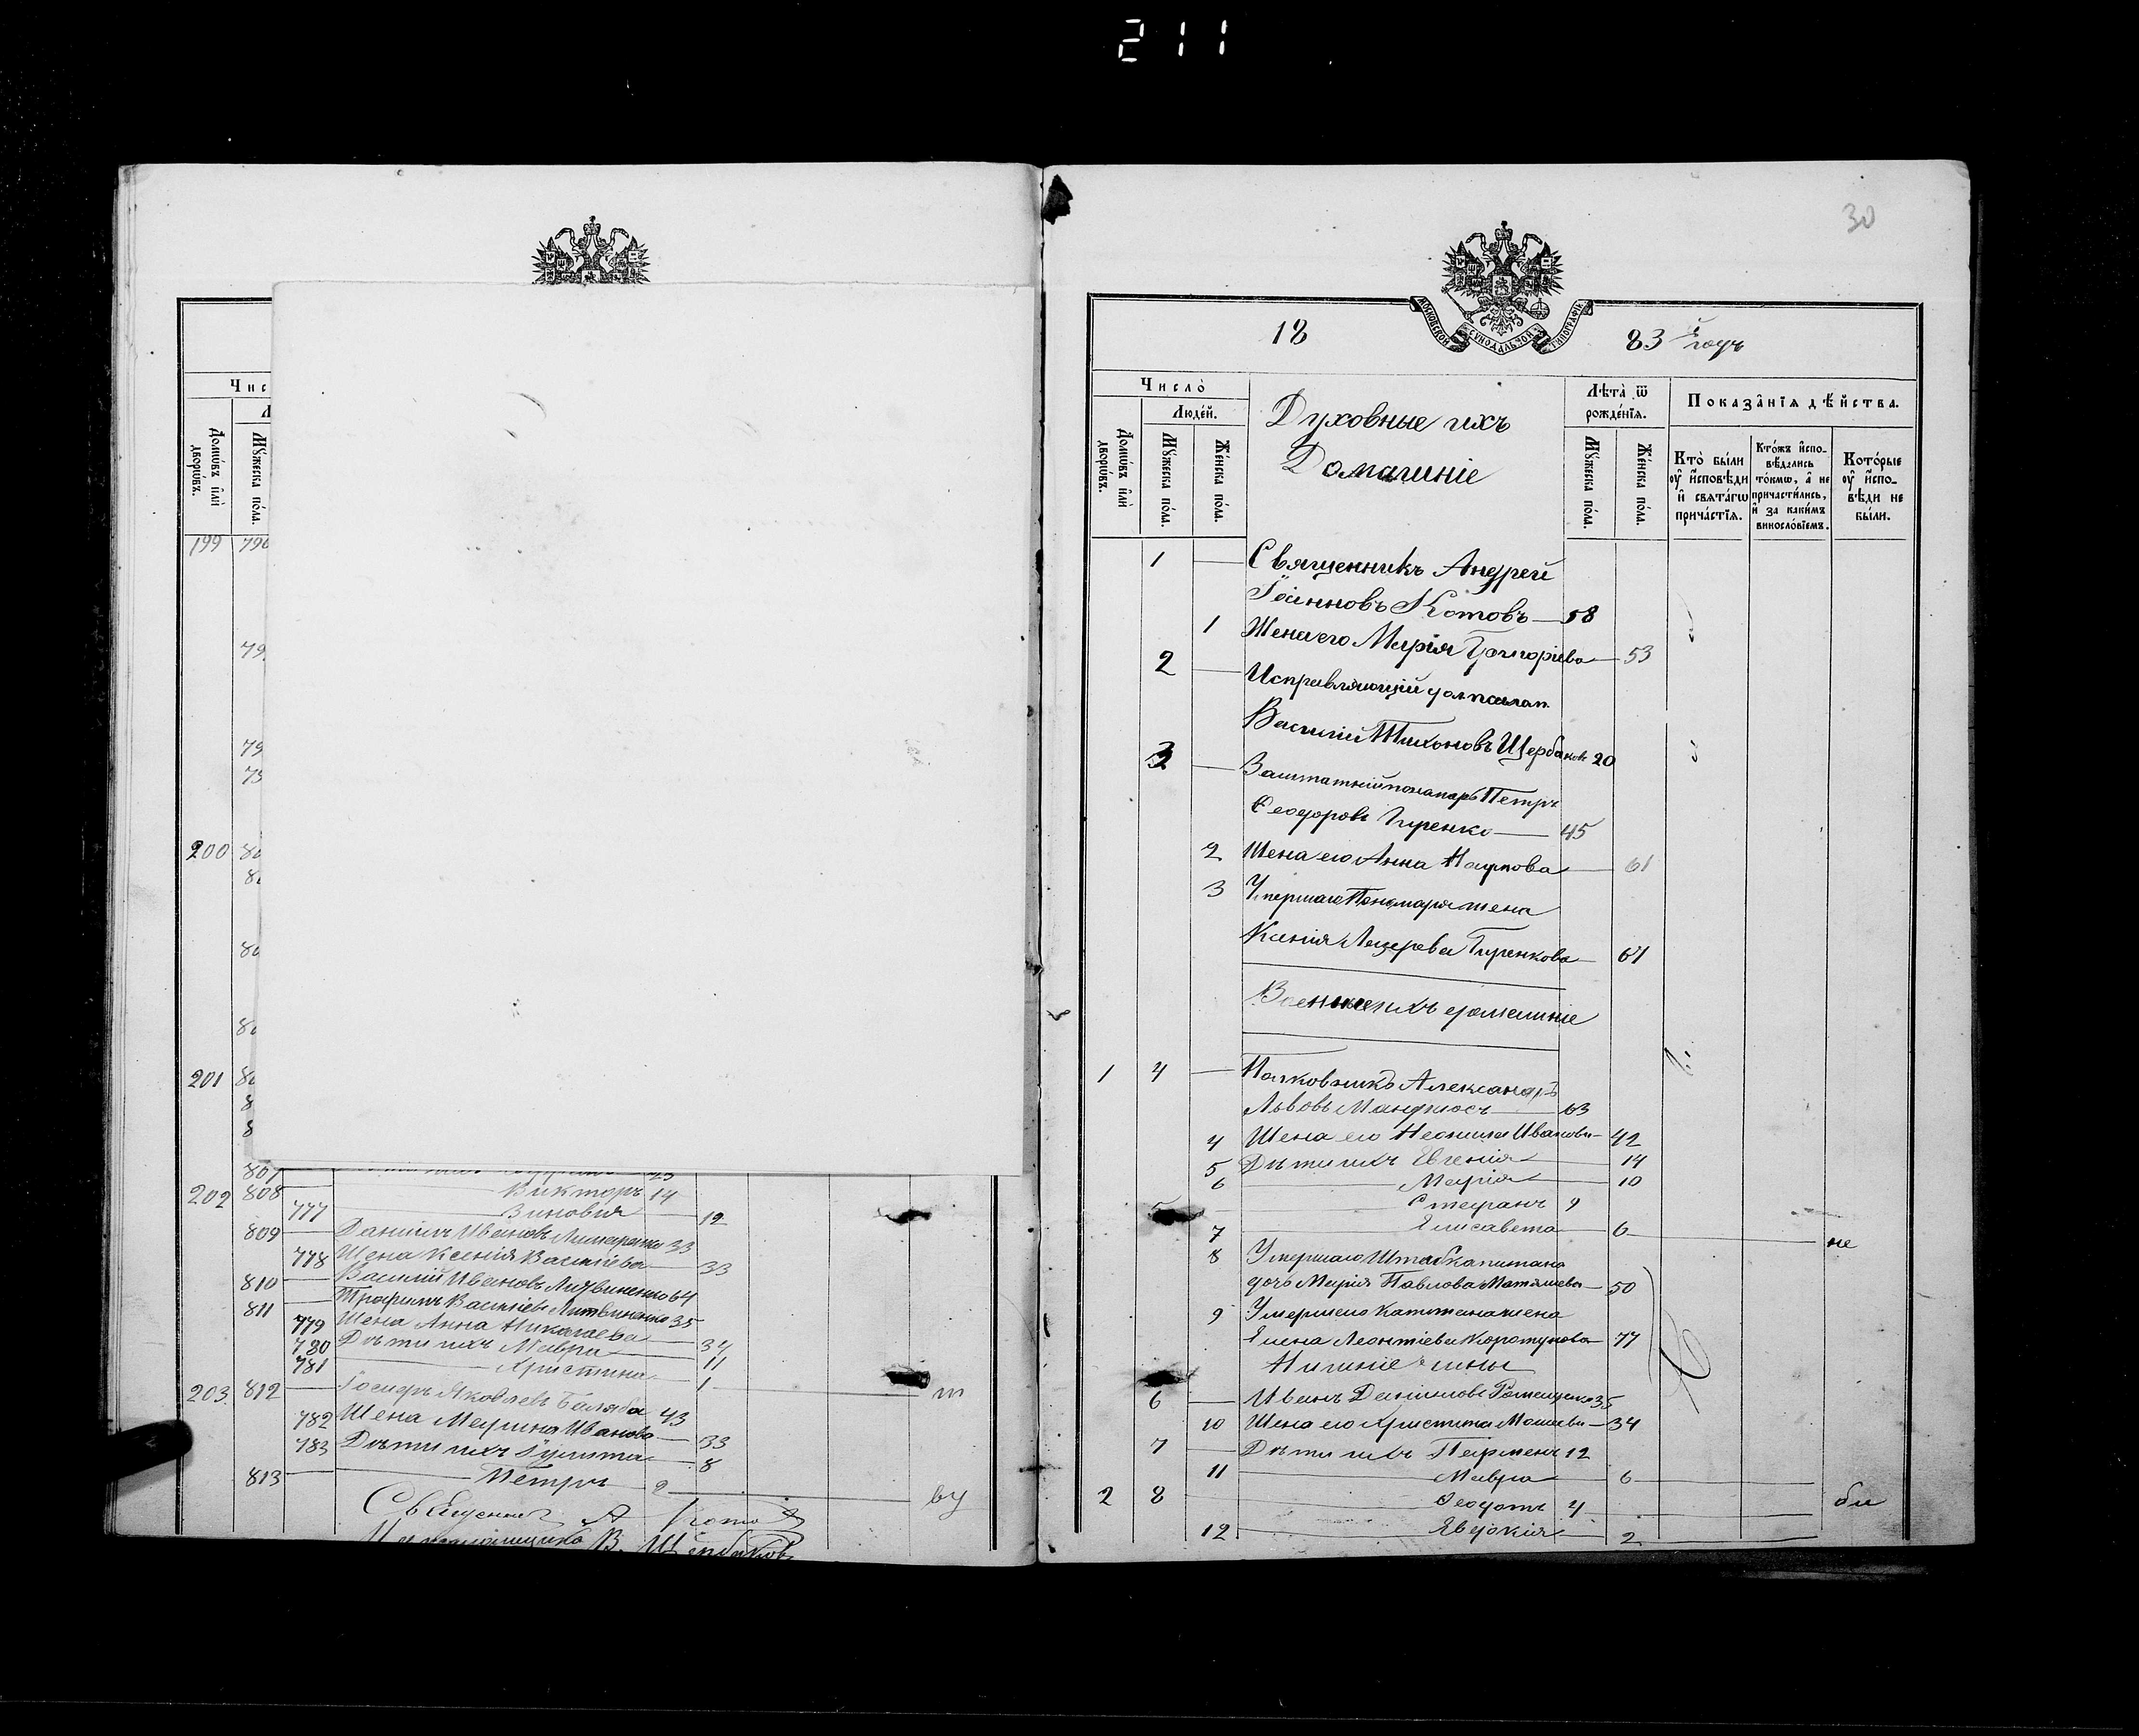 211
Чис
Домѡ́въ и҆лѝ дворѡ́въ.
Мꙋ́жеска по́ла.
199 796
79
79
79
200 80
80
80
80
201 80
8
8
807
202 808 Викторъ 14
777 Зиновия 12
809 Даніилъ Ивановъ 33
778 Жена Ксенія Василіева 33
810 Василій Ивановъ Литвиненко 64
811 Трофимъ Василіевъ Литвиненко 35
779 Жена Анна Николаева 34
780 Дѣти ихъ Мавра 11
781 Христина 1
203 812 Іосифъ Яковлевъ Баляба 43
782 Жена Марина Иванова 33
783 Дѣти ихъ Іулитта 8
813 Петръ 2
Священникъ А Котовъ
В. Щербаковъ
30
МОСКОВСКОЙ СѴНОДАЛЬНОЙ ТИПОГРАФІИ
18 83 годъ
Число̀
Люде́й.
Домѡ́въ и҆лѝ дворѡ́въ.
Мꙋ́жеска по́ла.
Же́нска по́ла.
Духовные ихъ
Домашніе
Лѣта̀ ѿ рожде́нїѧ.
Мꙋ́жеска по́ла.
Же́нска по́ла.
Показа̑нїѧ дѣ́йства.
Кто̀ бы́ли ᲂу҆ и҆сповѣди и҆ свѧта́гѡ прича́стїѧ.
Кто́жъ и҆сповѣдались то́кмѡ, а҆ не причасти́лись, и҆ за каки́мъ винословїемъ.
Кото́рые ᲂу҆ и҆сповѣди не бы́ли.
1 Священникъ Андрей
Іоанновъ Котовъ 58
1 Жена его Марія Григоріева 53
2 Исправляющій
Василій Тихоновъ Щербаковъ 20
3 Заштатный понамарь Петръ
Ѳеодоровъ Гиренко 45
2 Жена его Анна Наумова 61
3 Умершаго Пономаря жена
Ксенія Лазарева Гиренкова 61
Военные ихъ домашніе
1 4 Полковникъ Александръ
Львовъ 63
4 Жена его Неонила Иванова 42
5 Дѣти ихъ Евгенія 14
6 Марія 10
5 Стефанъ 9
7 Елисавета 6 не
8 Умершаго Штабкапитана
дочь Марія Павлова 50
9 Умершаго Капитана жена
Елена Леонтіева 77
Нижніе чины
6 Иванъ Даніиловъ 35
10 Жена его Христина Моисеева 34
7 Дѣти ихъ Парменъ 12
11 Мавра 6
2 8 Ѳеодотъ 4 бы
12 Явдокія 2